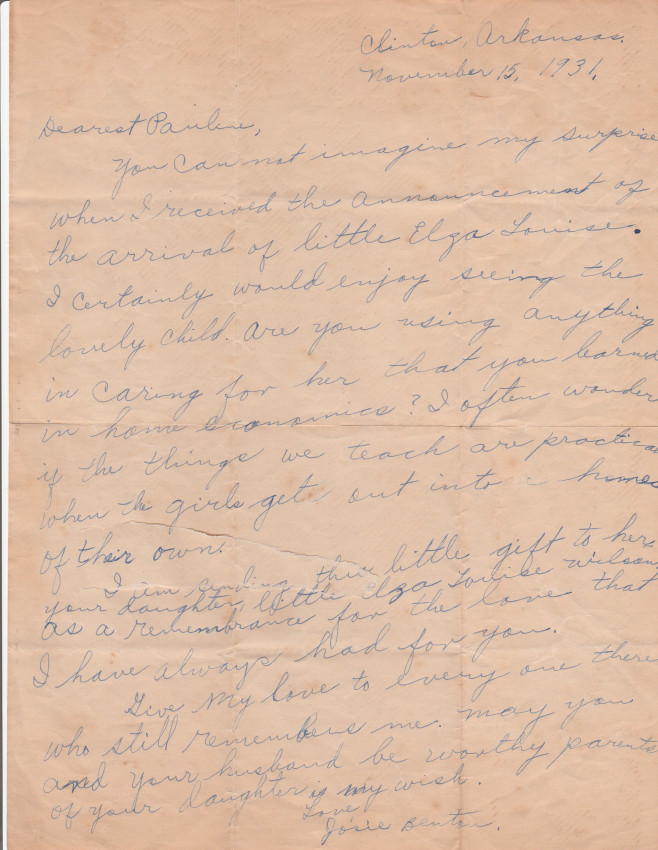 Clinton, Arkansas.
November 15, 1931.
Dearest Pauline,
You can not imagine my surprise
when I received the announcement of
the arrival of little Elza Louise.
I certainly would enjoy seeing the
lovely child. Are you using anything
in caring for her that you learned
in home economics? I often wonder
if the things we teach are practical
when the girls get out into homes
of their own.
I am sending this little gift to her,
your daughter, little Elza Louise Wilson,
as a remembrance for the love that
I have always had for you.
Give my love to every one there
who still remembers me. May you
and your husband be worthy parents
of your daughter is my wish.
Love
Josie Benton.